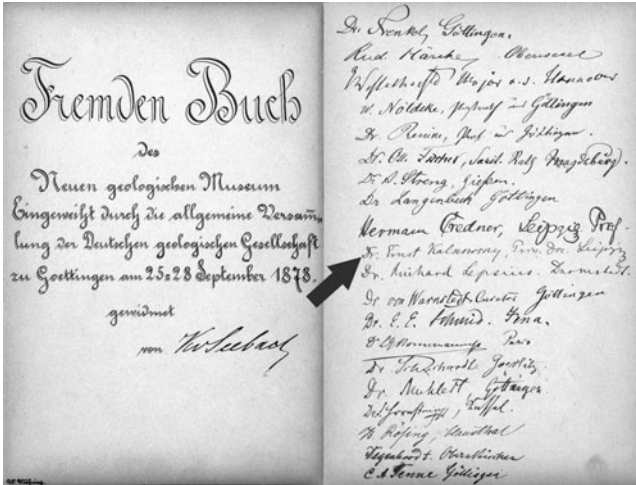 Fremden Buch
des
Neuen geologischen Museum
Eingeweiht durch die allgemeine Versamm-
lung der Deutschen geologischen Gesellschaft
zu Goettingen am 25-28 September 1878.
gewidmet
von KvSeebach
Dr. Frenkel, Göttingen.
Rud. Oberursel
Major a.D. Hannover
W. Nöldeke, in Göttingen
Dr. Prof. in Göttingen.
Dr. Magdeburg.
Dr. A. Streng, Giessen.
Dr Langenbeck Göttingen
Hermann Credner, Leipzig Prof.
Dr. Ernst Kalkowsky, Priv. Doc. Leipzig
Dr. Richard Lepsius. Darmstadt.
Dr von Warnstedt Curator Göttingen
Dr. E. E. Schmid. Jena.
Paris
Dr. Goerlitz.
Dr. Göttingen
Cassel.
Clausthal
Obernkirchen
C A Tenne Göttingen